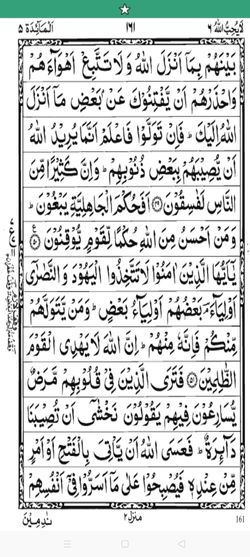 لَا يُحِبُّ اللّٰهُ ٦ ١٦١ اَلْمَآئِدَة ٥
بَيْنَهُمْ بِمَآ اَنْزَلَ اللّٰهُ وَلَا تَتَّبِعْ اَهْوَآءَهُمْ
وَاحْذَرْهُمْ اَنْ يَّفْتِنُوْكَ عَنْۢ بَعْضِ مَآ اَنْزَلَ
اللّٰهُ اِلَيْكَ ؕ فَاِنْ تَوَلَّوْا فَاعْلَمْ اَنَّمَا يُرِيْدُ اللّٰهُ
اَنْ يُّصِيْبَهُمْ بِبَعْضِ ذُنُوْبِهِمْ ؕ وَاِنَّ كَثِيْرًا مِّنَ
النَّاسِ لَفٰسِقُوْنَ ۝۴۹ اَفَحُكْمَ الْجَاهِلِيَّةِ يَبْغُوْنَ ؕ
وَمَنْ اَحْسَنُ مِنَ اللّٰهِ حُكْمًا لِّقَوْمٍ يُّوْقِنُوْنَ ۝۵۰
يٰۤاَيُّهَا الَّذِيْنَ اٰمَنُوْا لَا تَتَّخِذُوا الْيَهُوْدَ وَالنَّصٰرٰۤى
اَوْلِيَآءَ ؔۘ بَعْضُهُمْ اَوْلِيَآءُ بَعْضٍ ؕ وَمَنْ يَّتَوَلَّهُمْ
مِّنْكُمْ فَاِنَّهٗ مِنْهُمْ ؕ اِنَّ اللّٰهَ لَا يَهْدِى الْقَوْمَ
الظّٰلِمِيْنَ ۝۵۱ فَتَرَى الَّذِيْنَ فِىْ قُلُوْبِهِمْ مَّرَضٌ
يُّسَارِعُوْنَ فِيْهِمْ يَقُوْلُوْنَ نَخْشٰٓى اَنْ تُصِيْبَنَا
دَآئِرَةٌ ؕ فَعَسَى اللّٰهُ اَنْ يَّاْتِىَ بِالْفَتْحِ اَوْ اَمْرٍ
مِّنْ عِنْدِهٖ فَيُصْبِحُوْا عَلٰى مَآ اَسَرُّوْا فِىْٓ اَنْفُسِهِمْ
نٰدِمِيْنَ منزل ۲ 161